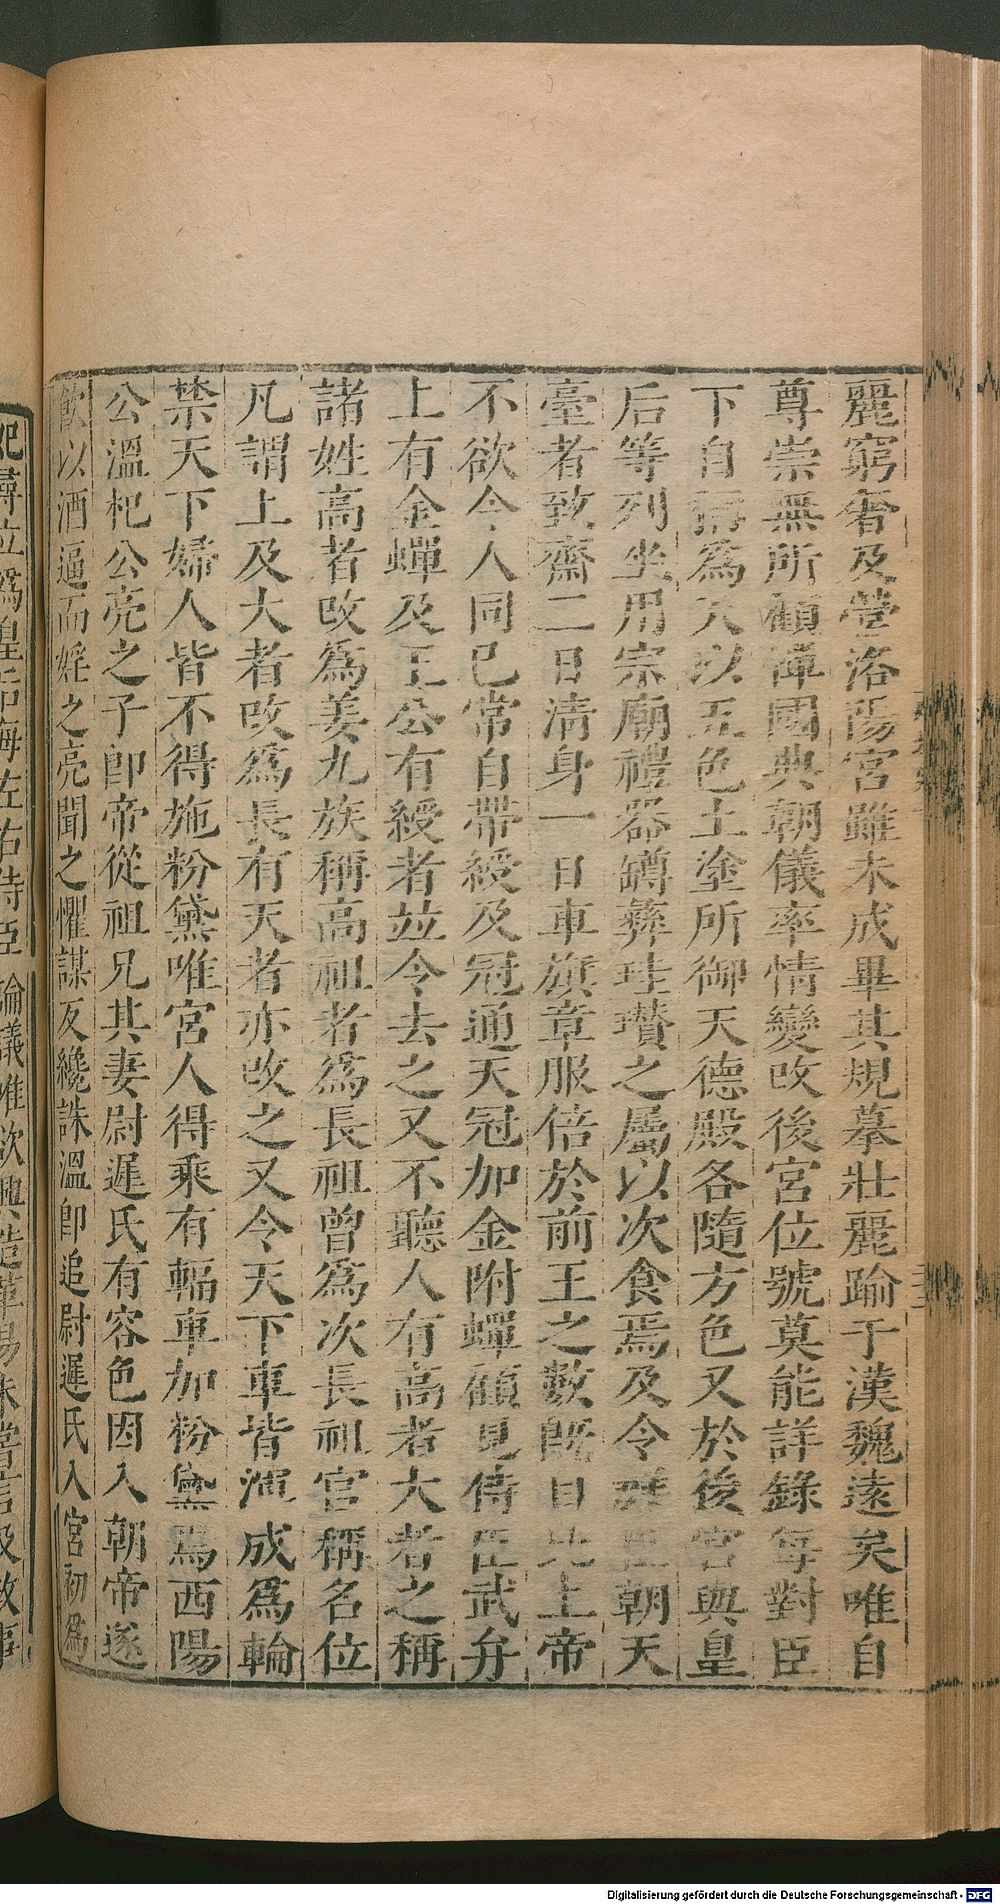 麗窮奢及營洛陽宮雖未成畢其規摹壯麗踰于漢魏遠矣唯自
尊崇無所顧憚國典朝儀率情變改後宮位號莫能詳錄每對臣
下自稱為天以五色土塗所御天德殿各隨方色又於後宮與皇
后等列坐用宗廟禮器罇彝珪瓚之屬以次食焉及令群臣朝天
臺者致齋二日清身一日車旗章服倍於前王之數既自比上帝
不欲令人同己常自帶綬及冠通天冠加金附蟬顧見侍臣武弁
上有金蟬及王公有綬者竝令去之又不聽人有高者大者之稱
諸姓高者改爲姜九族稱高祖者爲長祖曾爲次長祖官稱名位
凡謂上及大者改爲長有天者亦改之又令天下車皆渾成爲輪
禁天下婦人皆不得施粉黛唯宮人得乘有輻車加粉黛焉西陽
公溫杞公亮之子卽帝從祖兄其妻尉遲氏有容色因入朝帝遂
飮以酒逼而婬之亮聞之懼謀反纔誅溫卽追尉遲氏入宮初爲
妃尋立爲皇后每左右侍臣論議唯欲興造革易未嘗言及政事
Digitalisierung gefördert durch die Deutsche Forschungsgemeinschaft - DFG